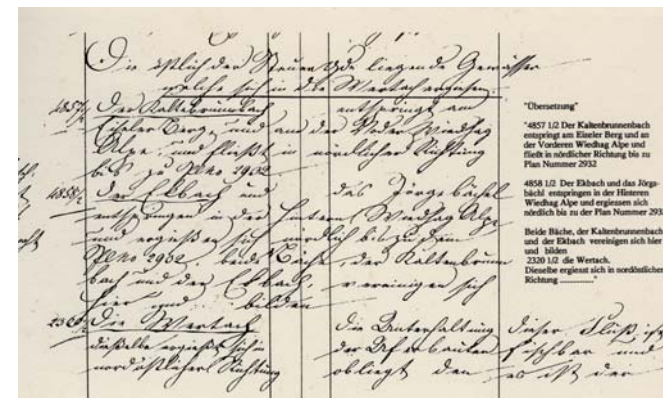 Die östlich der Steuer Gde liegende Gewässer
welche sich in die Wertach ergießen.
4857 1/2 Der Kaltebrunnbach entspringt am
Eiseler Berg, und an der Voder Wiedhag
Alpe, und fließt in nördlicher Richtung
bis zu Pl No 2932
4858 1/2 Der Ekbach und das Jörgebächel
entspringen in der Hintern Wiedhag Alpe
und ergießen sich nördlich bis zu dem
Pl No 2932. beide Bäche, der Kaltenbrunn
bach und der Ekbach, vereinigen sich
hier und bilden
2320 1/2 Die Wertach Die Unterhaltung dieser Fluß ist
dieselbe ergießt sich in der Uferbauten fischbar und
nordöstlicher Richtung obliegt den es ist der
"Übersetzung"
"4857 1/2 Der Kaltenbrunnenbach
entspringt am Eiseler Berg und an
der Vorderen Wiedhag Alpe und
fließt in nördlicher Richtung bis zu
Plan Nummer 2932
4858 1/2 Der Ekbach und das Jörga-
bächl entspringen in der Hinteren
Wiedhag Alpe und ergiessen sich
nördlich bis zu der Plan Nummer 293
Beide Bäche, der Kaltenbrunnenbach
und der Ekbach vereinigen sich hier
und bilden
2320 1/2 die Wertach.
Dieselbe ergiesst sich in nordöstlicher
Richtung .............."